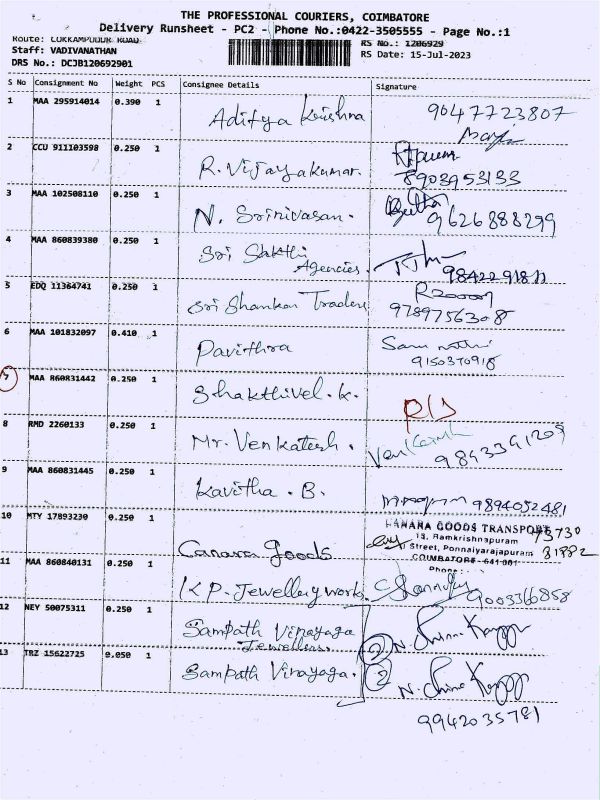 THE PROFESSIONAL COURIERS, COIMBATORE
Delivery Runsheet - PC2 - Phone No.:0422-3505555 - Page No.:1
Route: LOKKAMPUDUR ROAD
RS No.: 1206929
Staff: VADIVANATHAN
RS Date: 15-Jul-2023
DRS No.: DCJB120692901
S No Consignment No Weight PCS Consignee Details Signature
1 MAA 295914014 0.390 1 Aditya Krishna 9047723807
2 CCU 911103598 0.250 1 R. Vijayakumar. 8903953133
3 MAA 102508110 0.250 1 N. Srinivasan. 9626888299
4 MAA 860839380 0.250 1 Sri Sakthi
Agencies. 9842291811
5 EDQ 11364741 0.250 1 Sri Shankar Traders
9789756308
6 MAA 101832097 0.410 1 Pavithra
9150370918
7 MAA 860831442 0.250 1 Shakthivel. K.
8 RMD 2260133 0.250 1 Mr. Venkatesh. Venkatesh 9843391209
9 MAA 860831445 0.250 1 Kavitha. B. 9894052481
10 MTY 17893230 0.250 1 Canara goods
CANARA GOODS TRANSPORT 73730
13, Ramkrishnapuram
Street, Ponnaiyarajapuram 31882
COIMBATORE - 641 001
Phone:
11 MAA 860840131 0.250 1 K.P. Jewellery works. 9003366858
12 NEY 50075311 0.250 1 Sampath Vinayaga
Jewellers. 2
13 TRZ 15622725 0.050 1 Sampath Vinayaga. 2
9942035781